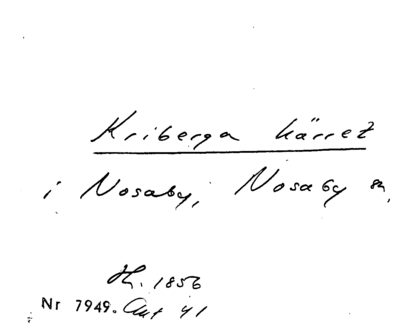 Kriberga kärret
i Nosaby, Nosaby sn,
H. 1856
Nr 7949. Aut 41